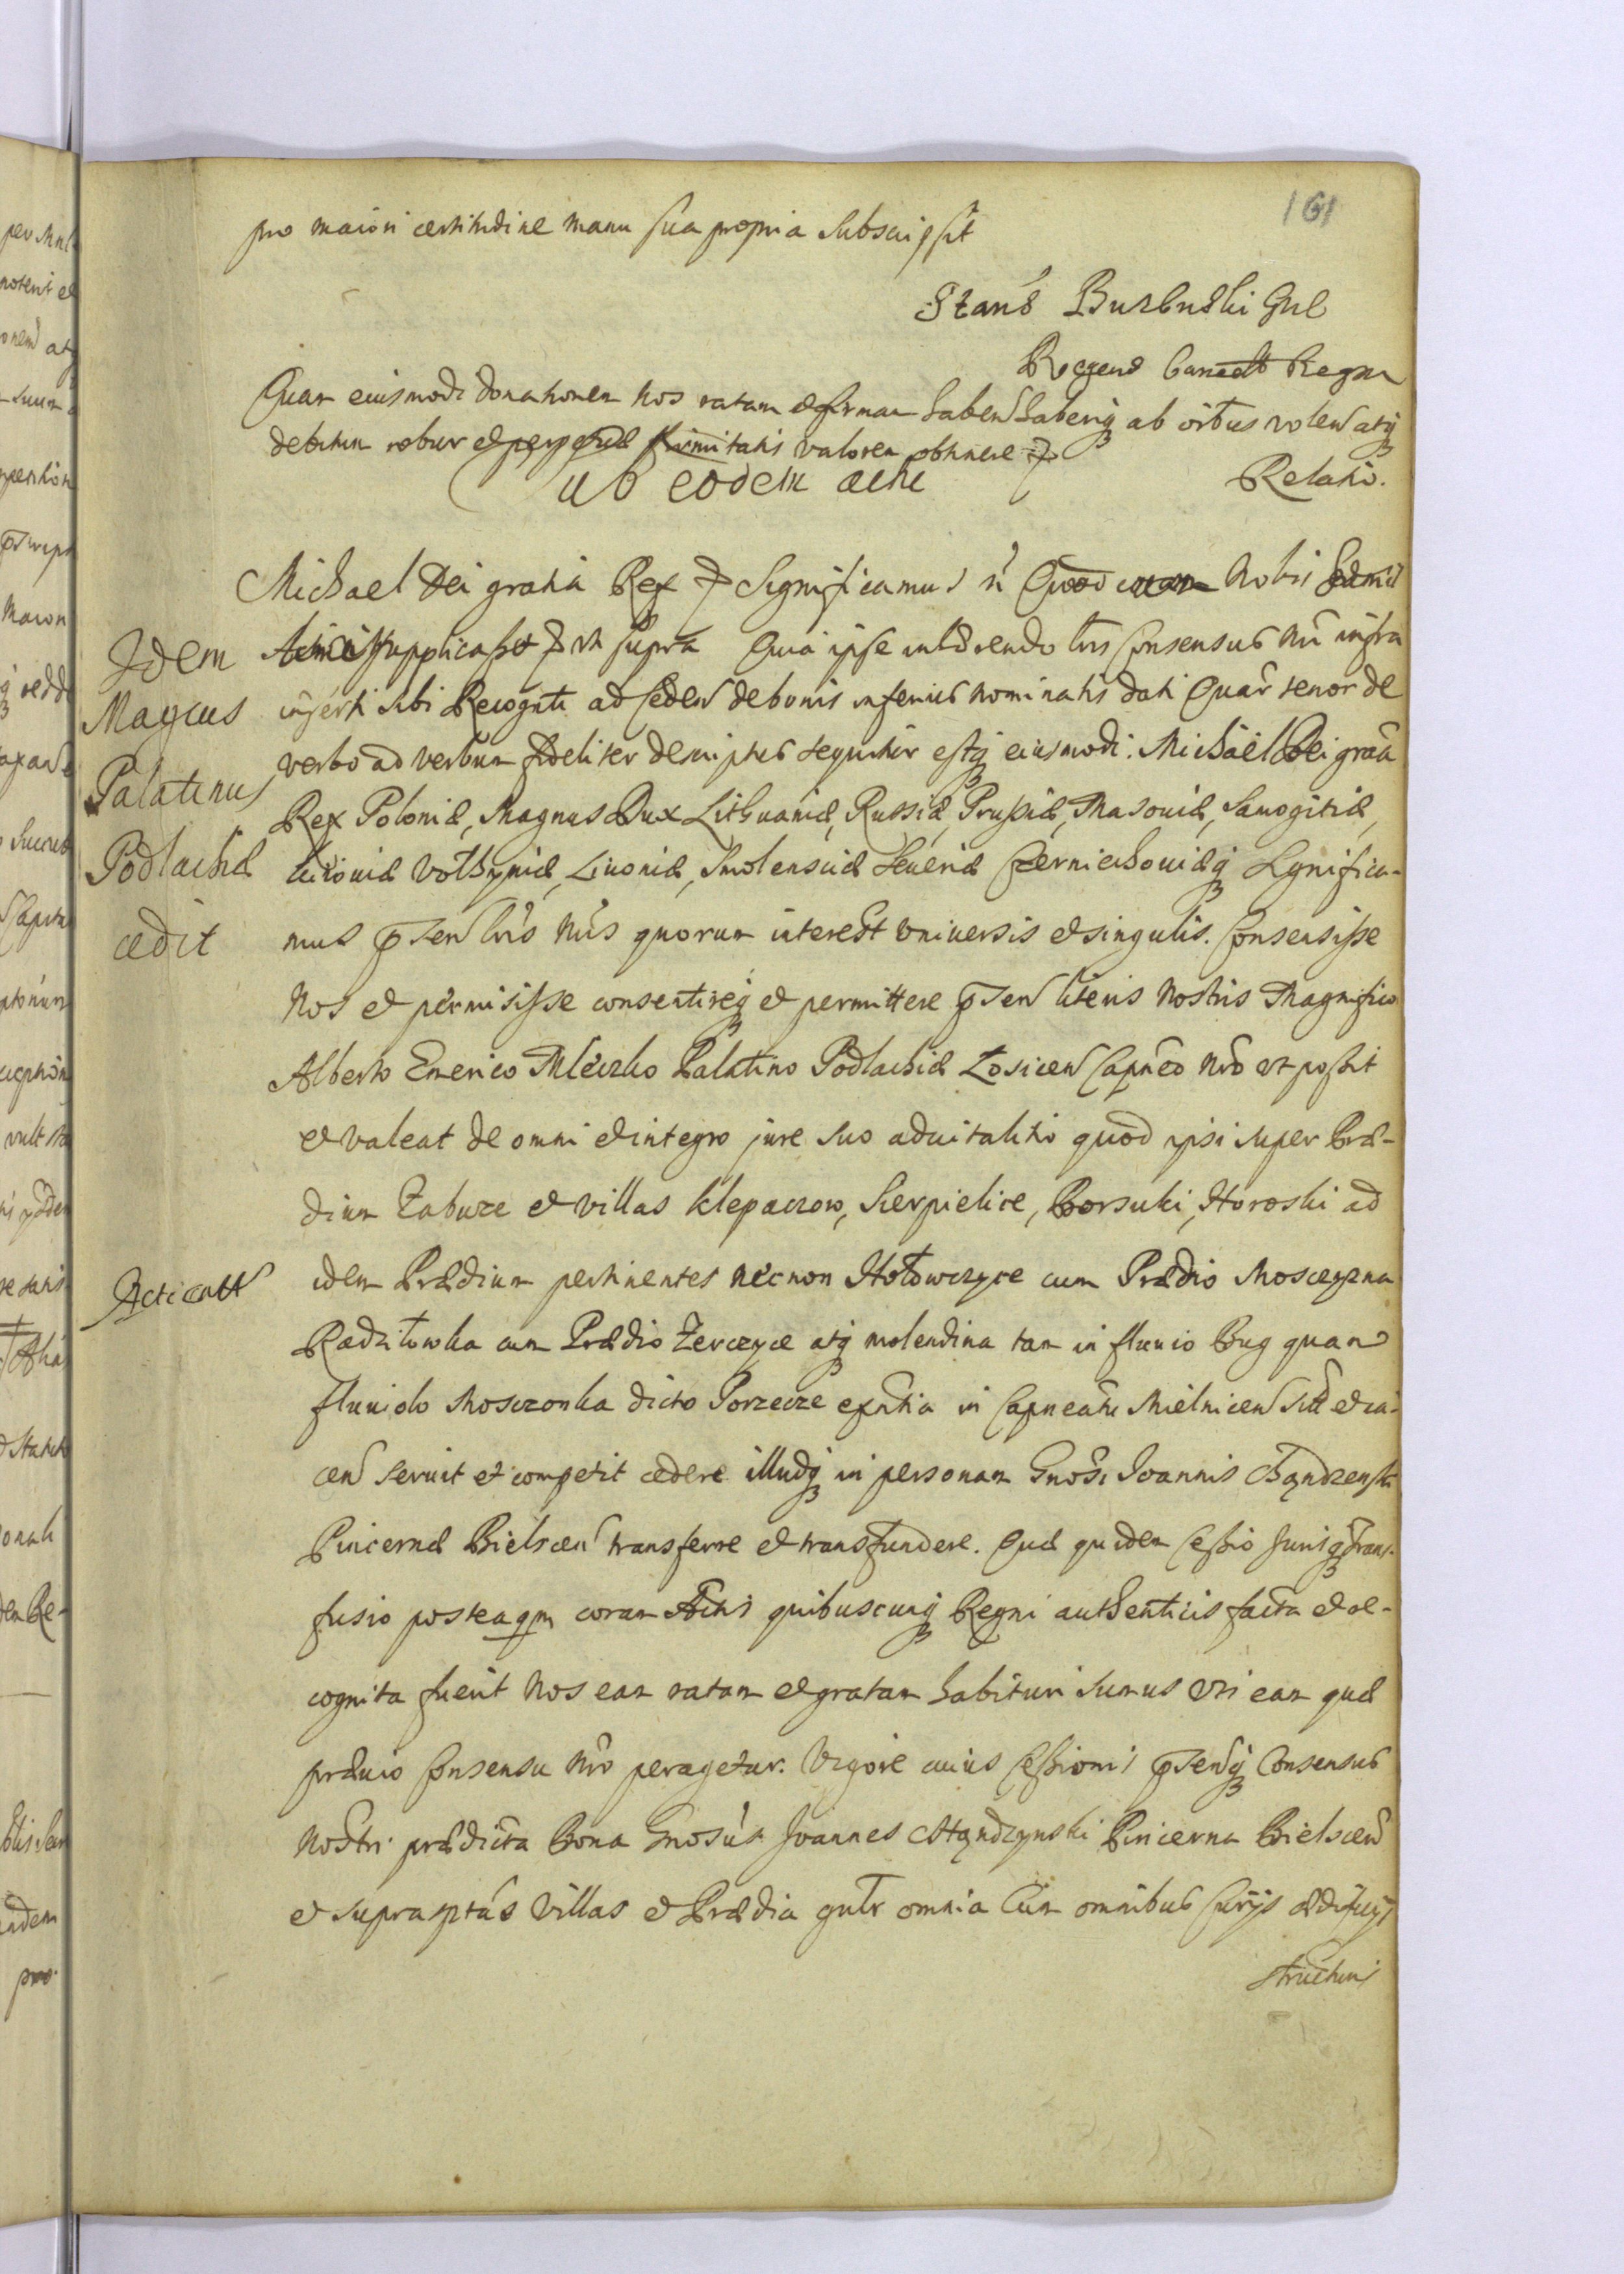 161
pro maiori certitudine manu sua propria subscripsit
Stans Burbnski Gnl
Regens Cancell Regni
Quam eiusmodi donationem nos ratam et firmam haben haberiq ab oibus volen atq
debitum robur et perpetuae firmitatis valorem obtinere
Relatio.
ub eodem actu
Michael Dei gratia Rex Significamus Quod coram Nobis
supplicasset ut supra Quia ipse inhaerendo lris Consensus nri infra
inserti sibi Recognti ad ceden de bonis inferius nominatis dati Quar tenor de
verbo ad verbum fideliter descriptus sequitur estq eiusmodi. Michael Dei graa
Rex Poloniae, Magnus Dux Lithuaniae, Russiae, Prussiae, Masoviae, Samogitiae,
Kiioviae Volhyniae, Livoniae, Smolensciae Severiae Czerniechoviaeq Significa-
mus pnsen lris nris quorum interest Universis et singulis. Consensisse
Nos et permisisse consentireq et permittere pnsen literis Nostris Magnifico
Alberto Emerico Mleczko Palatino Podlachiae Łosicen Capneo Nro ut possit
et valeat de omni et integro jure suo advitalitio quod ipsi super Prae-
dium Zabuze et villas Klepaczow, Sierpielice, Borsuki, Horoski ad
idem Praedium pertinentes necnon Hołowczyce cum Praedio Mosczyzna
Radziłowka cum Praedio Zerczyce atq molendina tam in fluvio Bug quam
fluviolo Mosczonka dicto Porzecze exntia in Capneatu Mielnicen sitt et ia-
cen servit et competit cedere illudq in personam Gnosi Joannis
Pincernae Bielscen transferre et transfundere. Quae quidem Cessio Jurisq Trans-
fusio posteaqm coram Actis quibuscunq Regni authenticis facta et re-
cognita fuerit Nos eam ratam et gratam habituri sumus Uti eam quae
praevio Consensu Nro peragetur. Vigore cuius Cessionis pnsenq Consensus
Nostri praedicta Bona Gnosus Joannes Pincerna Bielscen
et supraptas Villas et Praedia gnlr omnia Cum omnibus Curijs aedificijs
structuris
Idem
Magcus
Palatinus
Podlachiae
cedit
Acticatt